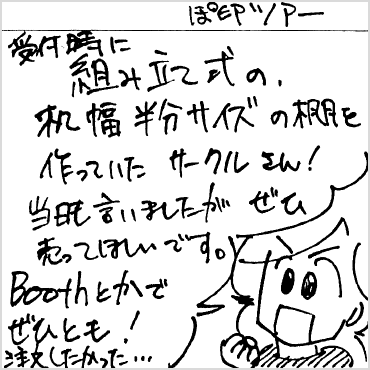 受付時に
組み立て式の、
机幅半分サイズの棚を
作っていたサークルさん!
当日も言いましたがぜひ
売ってほしいです。
Boothとかで
ぜひとも!
注文したかった…